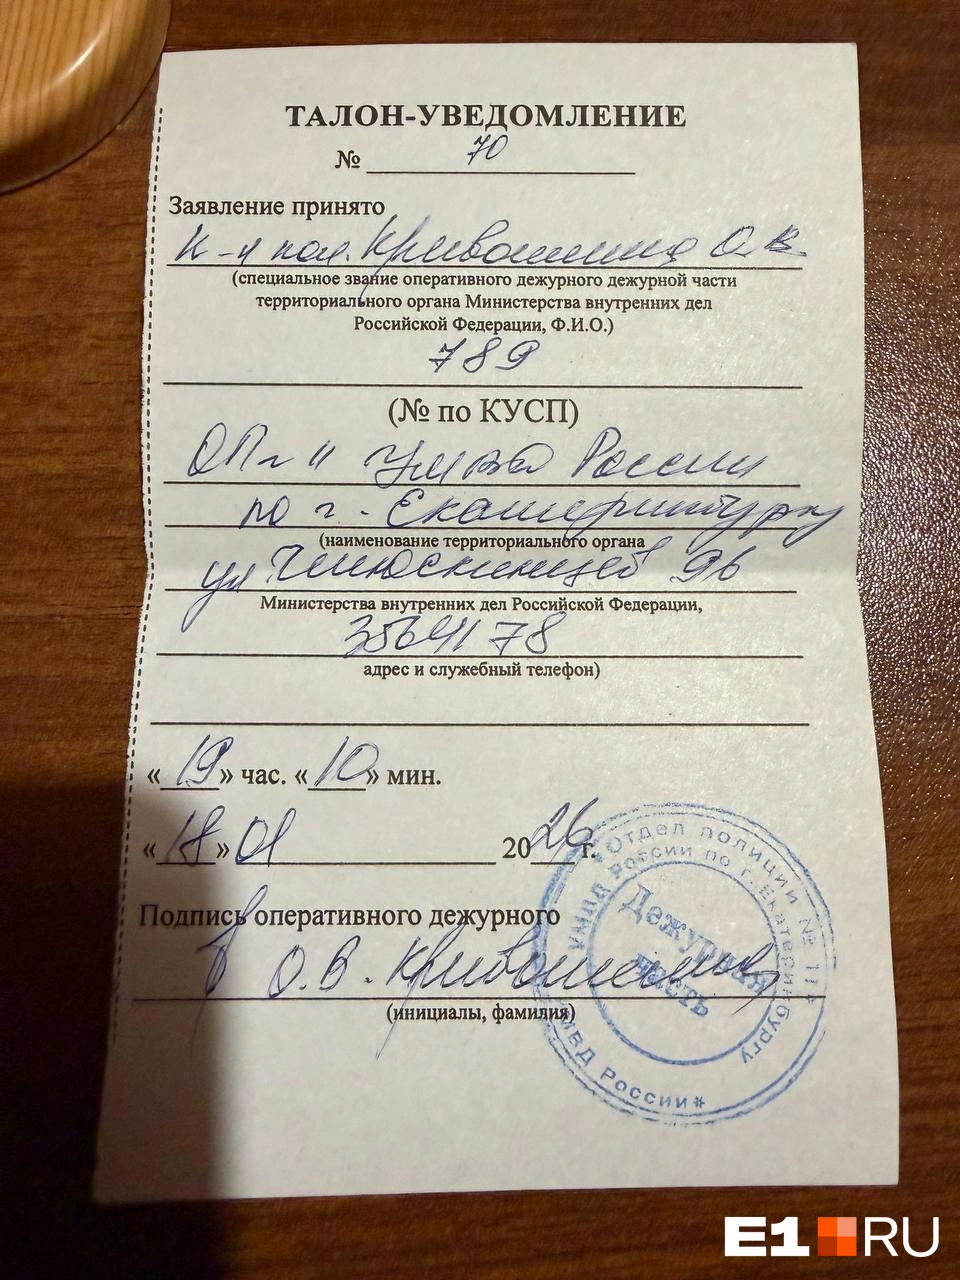 ТАЛОН-УВЕДОМЛЕНИЕ
№ 70
Заявление принято
к-н пол. Кривошеина О.В.
(специальное звание оперативного дежурного дежурной части
территориального органа Министерства внутренних дел
Российской Федерации, Ф.И.О.)
789
(№ по КУСП)
УМВД России
по г. Екатеринбургу
(наименование территориального органа
ул Челюскинцев 96
Министерства внутренних дел Российской Федерации,
3564178
адрес и служебный телефон)
«19» час. «10» мин.
«18» 01 2026 г.
Подпись оперативного дежурного
О.В. Кривошеина
(инициалы, фамилия)
Отдел полиции № 11
УМВД России по г. Екатеринбургу
Дежурная
часть
МВД России*
E1 RU